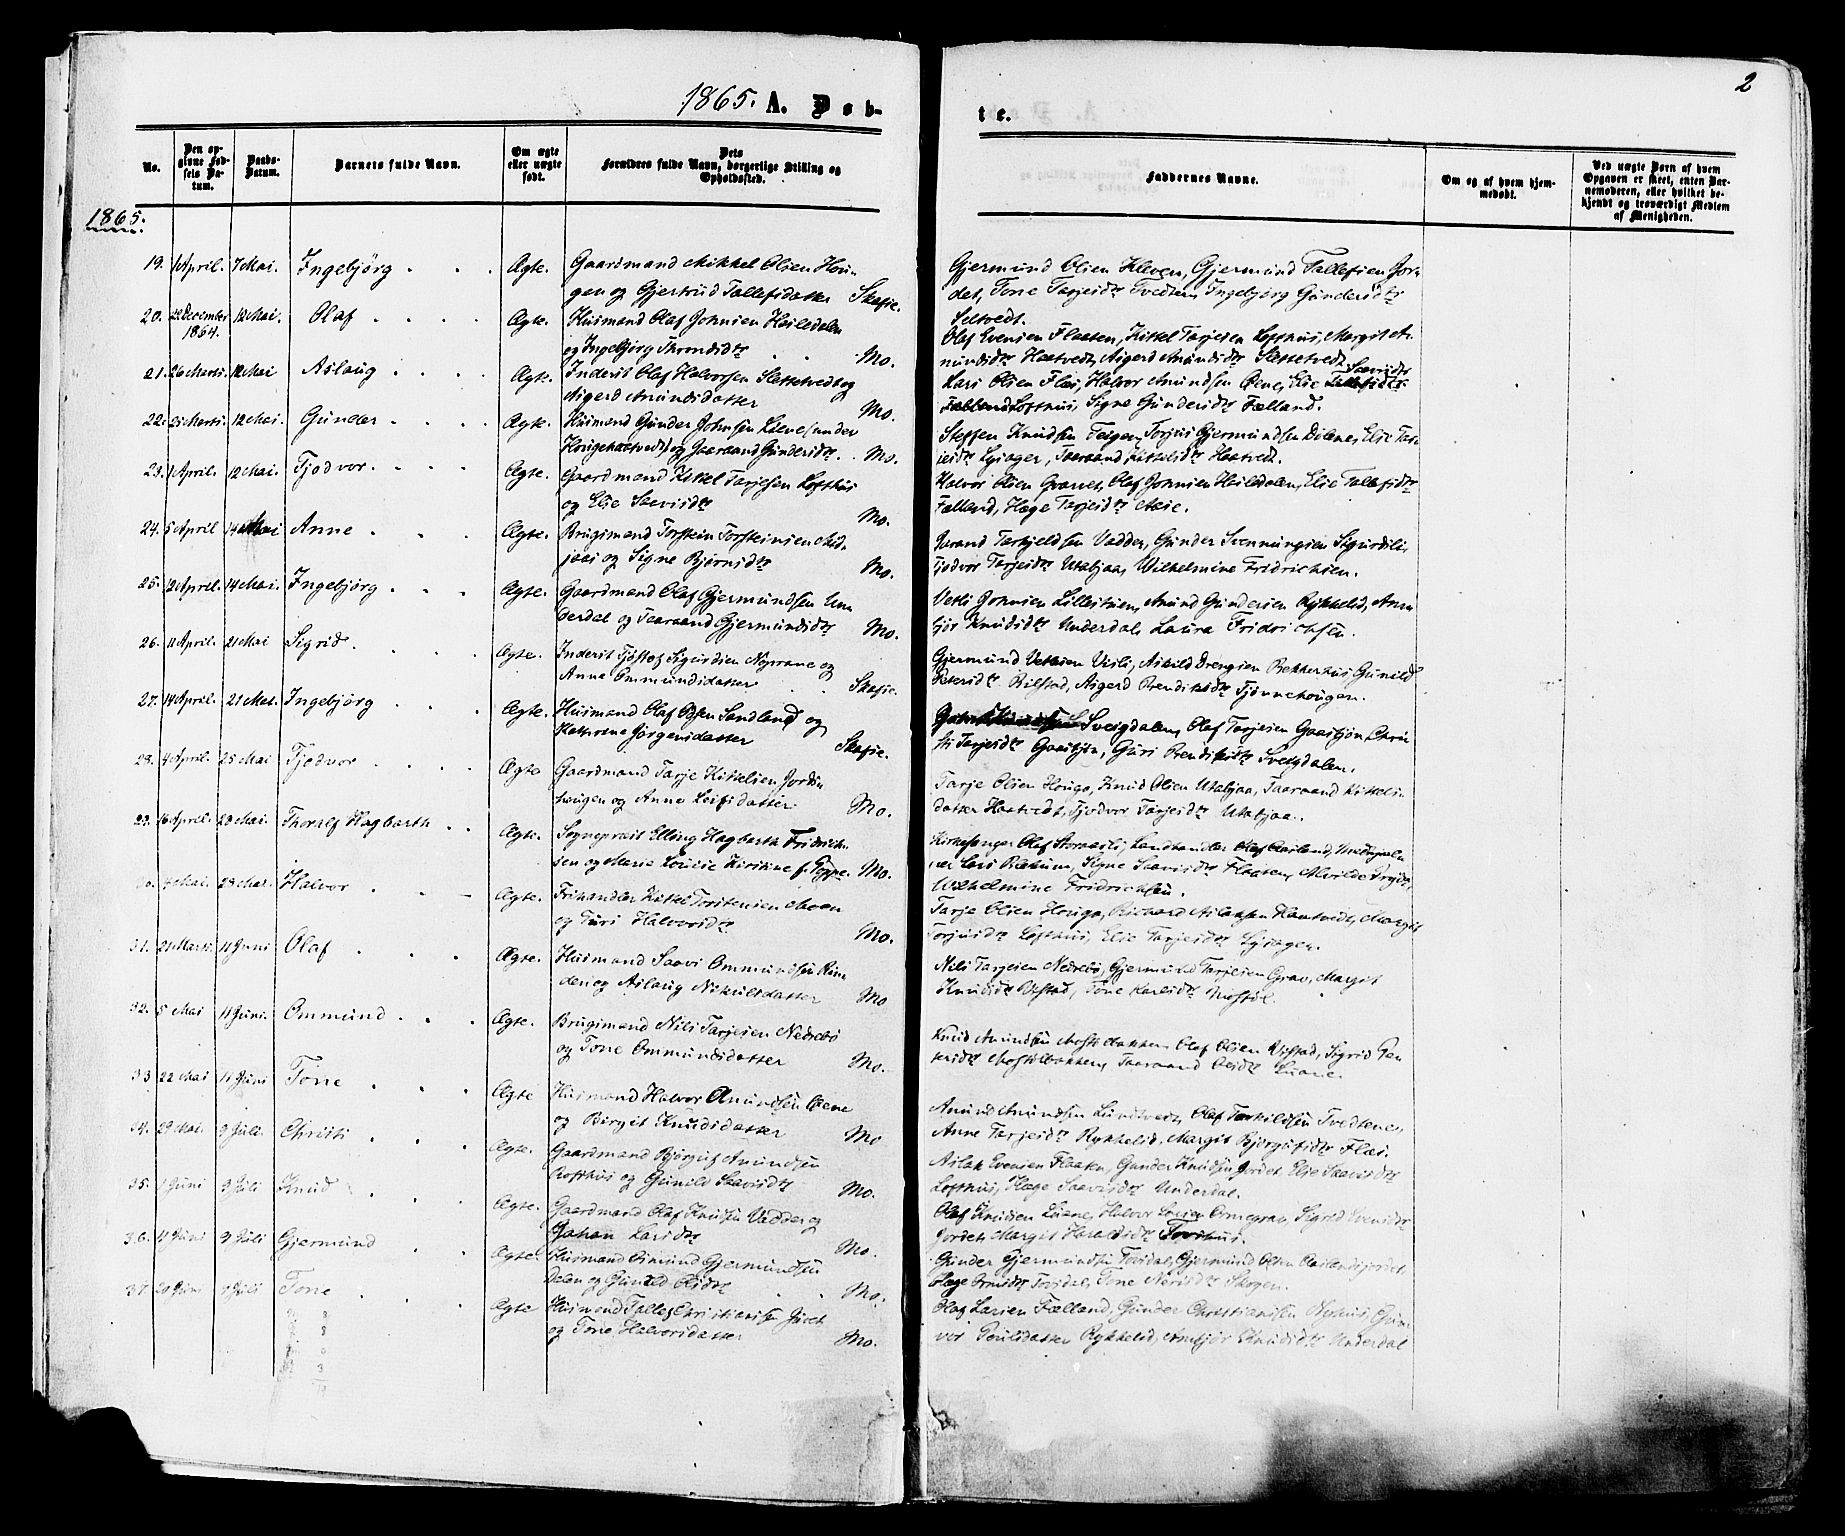 1865. A. Døb-
te.
2
No.
Den opgivne Fødsels Datum.
Daabs-Datum.
Barnets fulde Navn.
Om ægte eller uægte født.
Dets Forældres fulde Navn, borgerlige Stilling og Opholdssted.
Faddernes Navne.
Om og af hvem hjemmedøbt.
Ved uægte Børn af hvem Opgaven er skeet, enten Barnemoderen, eller hvilket bekjendt og troværdigt Medlem af Menigheden.
1865.
19. 1 April. 7 Mai. Ingebjørg Ægte. Gaardmand Mikkel Olsen Hou-
gen og Gjertrud Tallefsdatter Skafse.
Gjermund Olsen Kleven, Gjermund Tallefsen Jor-
det, Tone Tarjeisdtr Tvedten, Ingebjørg Gundersdtr
Seltvedt.
20. 22 December 1864. 12 Mai. Olaf Ægte. Huusmand Olaf Johnsen Heilsdalen
og Ingebjørg Throndsdtr Mo.
Olaf Evensen Flaaten, Kittel Tarjeisen Lofthus, Margit A-
mundsdtr Haatvedt, Aigerd Amundsdtr Slettetvedt.
21. 26 Marts. 12 Mai Aslaug Ægte. Inderst Olaf Halvorsen Slettetvedt og
Aigerd Amundsdatter Mo.
Kari Olsen Flaa, Halvor Amundsen Øene, Else Saavisdtr
Lofthus, Signe Gundersdtr Fælland.
22. 25 Marts. 12 Mai. Gunder Ægte. Huusmand Gunder Johnsen Lien (under
Hougehaatvedt) og Gundersdtr Mo.
Steffen Knudsen Teigen, Torjus Gjermundsen Dalene, Else Tar-
jeisdtr Lysager, Taaraand Kittelsdtr Haatvedt.
23. 1 April. 12 Mai. Tjodvor Ægte. Gaardmand Kittel Tarjeisen Lofthus
og Else Saavisdtr Mo.
Halvor Olsen, Olaf Johnsen Heilsdalen, Else Tallefsdtr
Fælland, Hæge Tarjeisdtr
24. 5 April 14 Mai Anne Ægte. Brugsmand Torstein Torsteinsen Mid-
og Signe Bjørnsdtr Mo.
Tarkjeldsen Vadder, Gunder Svennungsen
Tjodvor Tarjeisdtr Utabjaa, Wilhelmine Fridrichsen.
25. 12 April. 14 Mai. Ingebjørg Ægte. Gaardmand Olaf Gjermundsen Un-
derdal og Taaraand Gjermundsdtr Mo.
Vetle Johnsen Lillestuen, Amund Gundersen Rykkelid, Am-
bjør Knudsdtr Underdal, Laura Fridrichsen.
26. 11 April. 21 Mai Sigrid Ægte. Inderst Tjøstof Sigurdsen og
Anne Ommundsdatter Skafse.
Gjermund Vetlesen Visli, Drengsen Gunild
Bilstad, Aigerd Bendiksdtr Tjønnehougen.
27. 14 April. 21 Mai. Ingebjørg Ægte. Huusmand Olaf Olsen Sandland og
Kathrine Jørgensdatter Skafse.
Sveigdalen, Olaf Tarjeisen Gaastjøn, Chris-
ti Tarjeisdtr Gaastjøn, Guri Bendiksdtr Sveigdalen.
28. 4 April. 25 Mai Tjodvor Ægte Gaardmand Tarje Kittelsen Jordn-
hougen og Anne Leifsdatter Mo.
Tarje Olsen Houge, Knud Olsen Utabjaa, Taaraand Kittels-
datter Haatvedt, Tjodvor Tarjeisdtr Utabjaa.
29. 16 April. 28 Mai. Thoralf Hagbarth Ægte. Sognepræst Elling Hagbarth Fridrich-
sen og Marie Louise Kirstine f. Poppe. Mo.
Kirkesanger Olaf Storaasli, Landhandler Olaf Aasland,
Signe Saavisdtr Flaaten,
Wilhelmine Fridrichsen.
30. 7 Mai. 28 Mai. Halvor Ægte. Frihandler Kittel Torstensen Moen
og Guri Halvorsdtr Mo.
Tarje Olsen Houge, Richard Aslaksen Haatvedt, Margit
Torjusdtr Lofthus, Else Tarjeisdtr Lysager.
31. 21 Marts 11 Juni Olaf Ægte. Huusmand Saavi Ommundsen Rin-
den og Aslaug Nikulsdatter Mo
Nils Tarjeisen Nedrebø, Gjermund Tarjeisen Grav, Margit
Knudsdtr Vistad, Tone Karlsdtr
32. 5 Mai 11 Juni. Ommund Ægte. Brugsmand Nils Tarjeisen Nedrebø
og Tone Ommundsdatter Mo.
Knud Amundsen Mostølbakken Olaf Olsen Vistad, Sigrid
Mostølbakken, Taaraand
33 22 Mai 11 Juni Tone Ægte Huusmand Halvor Amundsen Øene
og Birgit Knudsdatter Mo
Amund Amundsen Lundevedt, Olaf Tarkildsen Tvedtene,
Anne Tarjeisdtr Rykkelid, Margit Bjørgufsdtr Flaa.
34. 29 Mai. 9 Juli. Christi Ægte. Gaardmand Bjørguf Amundsen
Lofthus og Gunild Saavisdtr Mo.
Aslak Evensen Flaaten, Gunder Knudsen Jordet, Else Saavisdtr
Lofthus, Hæge Saavisdtr Underdal.
35. 1 Juni 9 Juli Knud Ægte. Gaardmand Olaf Knudsen Vadder og
Johan Larsdtr Mo.
Olaf Knudsen Luane, Halvor Larsen Ormegrav, Sigrid Evensdtr
Jordet, Margit Haraldsdtr
36. 11 Juni 9 Juli Gjermund Ægte. Huusmand Amund Gjermundsen
Dalen og Gunild Olsdtr Mo.
Gunder Gjermundsen Tovsdal, Gjermund Olsen Aaslandsjordet,
Hæge Tovsdal, Tone Nersdtr Skogen.
37. 20 Juni 9 Juli Tone Ægte Huusmand Tallef Christiansen
og Tone Halvorsdatter Mo.
Olaf Larsen Fælland, Gunder Christiansen Nyhus, Gun-
vor Poulsdatter Rykkelid, Ambjør Knudsdtr Underdal